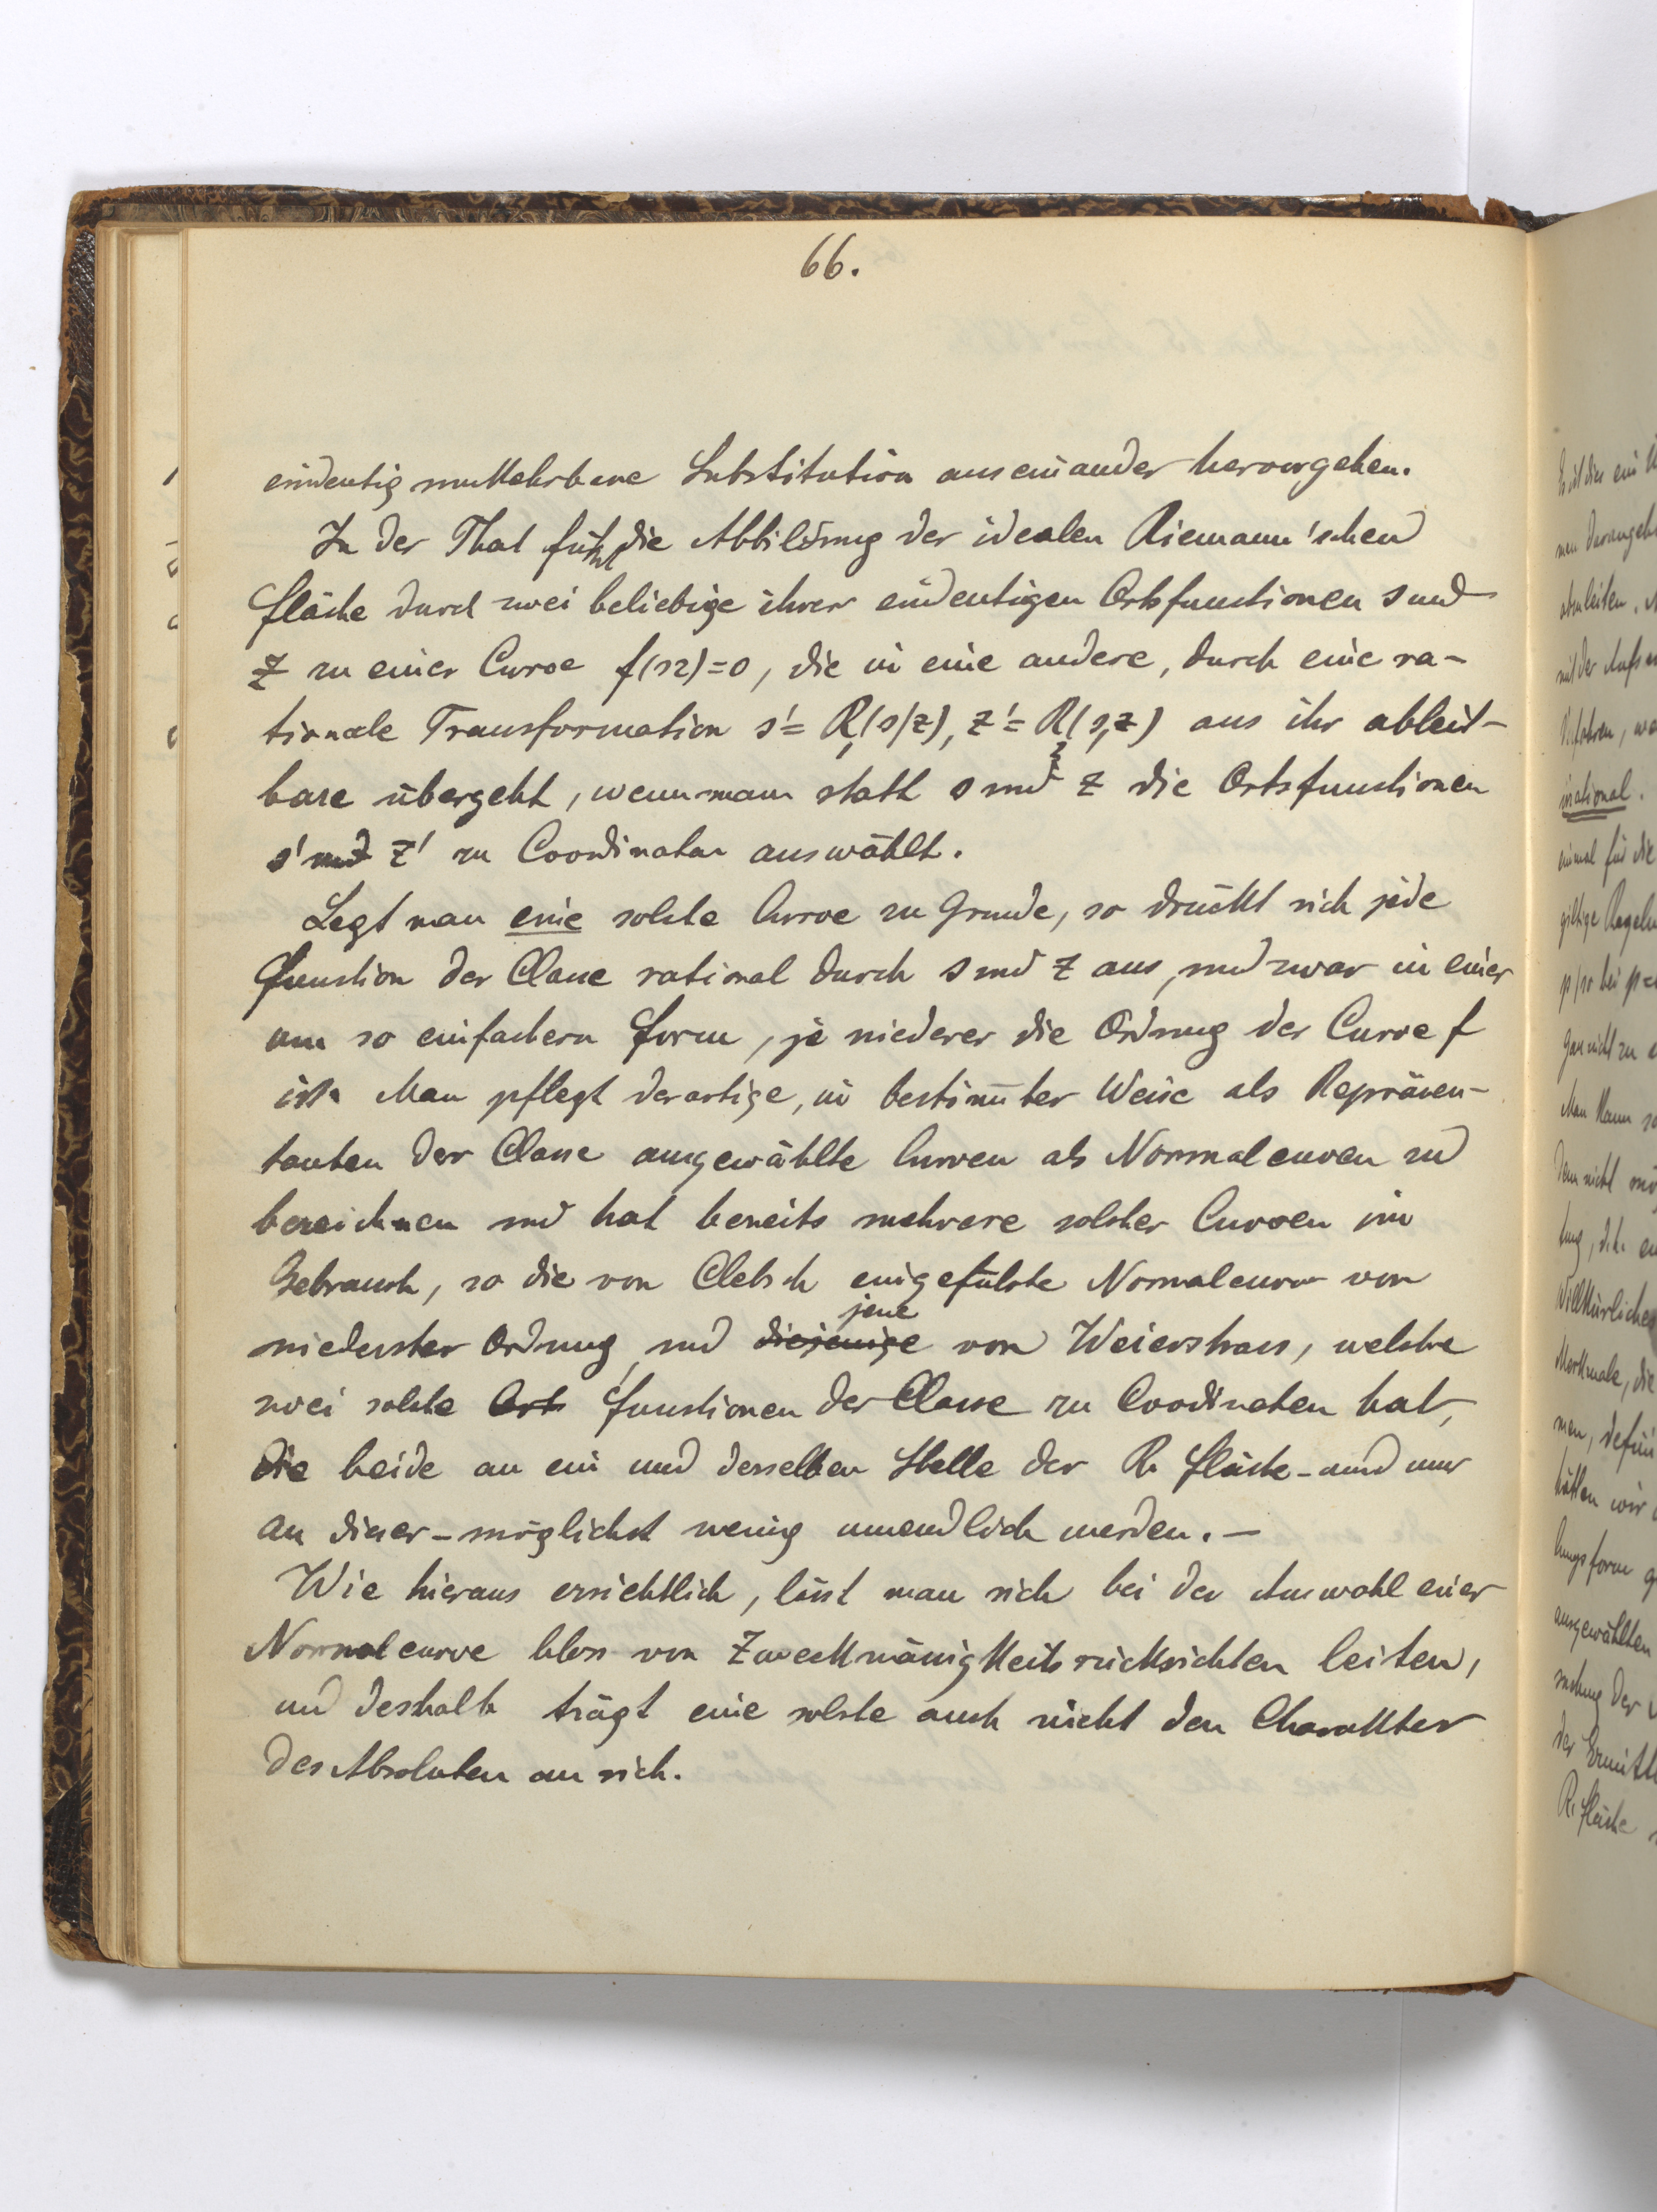 66.
eindeutig umkehrbare Substitution auseinander hervorgehen.
In der That führt die Abbildung der idealen Riemann'schen
Fläche durch zwei beliebige ihrer eindeutigen Ortsfunctionen s und
z zu einer Curve f(sz)=0, die in eine andere, durch eine ra-
tionale Transformation s'= R₁(s/z), z'= R₂(s,z) aus ihr ableit-
bare übergeht, wenn man statt s und z die Ortsfunctionen
s' und z' zu Coordinaten auswählt.
Legt man eine solche Curve zu Grunde, so drückt sich jede
Function der Classe rational durch s und z aus, und zwar in einer
um so einfachern Form, je niederer die Ordnung der Curve f
ist. Man pflegt derartige, in bestim̄ter Weise als Repräsen-
tanten der Classe ausgewählte Curven als Normalcurven zu
bezeichnen und hat bereits mehrere solcher Curven im
Gebrauch, so die von Clebsch eingeführte Normalcurve von
niederster Ordnung, und diejenige jene von Weierstrass, welche
zwei solche Ort Functionen der Classe zu Coordinaten hat,
die beide an ein und derselben Stelle der R. Fläche - und nur
an dieser - möglichst wenig unendlich werden. —
Wie hieraus ersichtlich, lässt man sich bei der Auswahl einer
Normalcurve blos von Zweckmässigkeitsrücksichten leiten,
und deshalb trägt eine solche auch nicht den Charakter
des Absoluten an sich.
Es ist dies ein
irrational.
einmal für die
giltige Regeln
Gar nicht zu
Man kann
Willkürliche
Merkmale, die
hätten wir
ausgewählten
R. Fläche